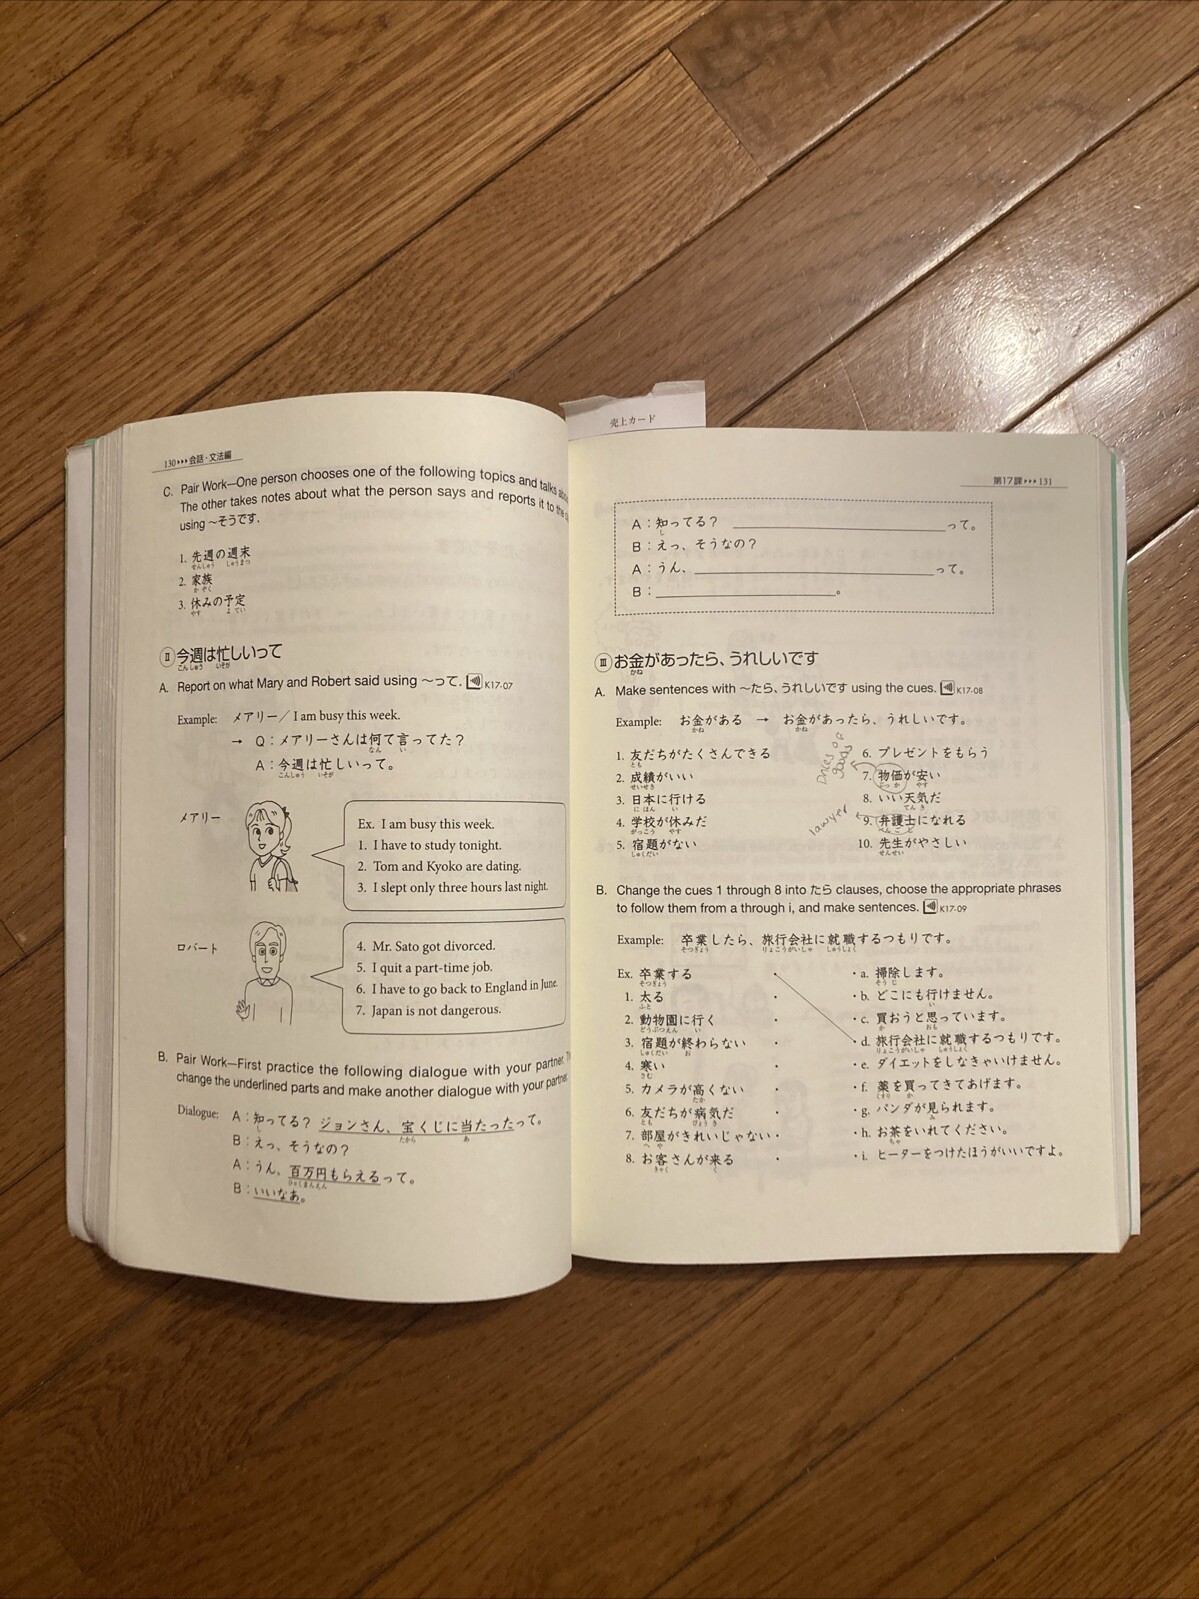 売上カード
130 ▸▸▸ 会話・文法編
C. Pair Work—One person chooses one of the following topics and talks
The other takes notes about what the person says and reports it to the
using ～そうです.
1. 先週の週末
せんしゅう しゅうまつ
2. 家族
かぞく
3. 休みの予定
やす よてい
Ⅱ 今週は忙しいって
こんしゅう いそが
A. Report on what Mary and Robert said using ～って. K17-07
Example: メアリー／I am busy this week.
→ Q：メアリーさんは何て言ってた？
なん い
A：今週は忙しいって。
こんしゅう いそが
メアリー
Ex. I am busy this week.
1. I have to study tonight.
2. Tom and Kyoko are dating.
3. I slept only three hours last night.
ロバート
4. Mr. Sato got divorced.
5. I quit a part-time job.
6. I have to go back to England in June.
7. Japan is not dangerous.
B. Pair Work—First practice the following dialogue with your partner.
change the underlined parts and make another dialogue with your partner
Dialogue: A：知ってる？ ジョンさん、宝くじに当たったって。
し たから あ
B：えっ、そうなの？
A：うん、百万円もらえるって。
ひゃくまんえん
B：いいなあ。
第17課 ▸▸▸ 131
A：知ってる？ って。
し
B：えっ、そうなの？
A：うん、 って。
B： 。
Ⅲ お金があったら、うれしいです
かね
A. Make sentences with ～たら、うれしいです using the cues. K17-08
Example: お金がある → お金があったら、うれしいです。
かね かね
1. 友だちがたくさんできる
とも
2. 成績がいい
せいせき
3. 日本に行ける
にほん い
4. 学校が休みだ
がっこう やす
5. 宿題がない
しゅくだい
prices of
goods
lawyer
6. プレゼントをもらう
7. 物価が安い
ぶっか やす
8. いい天気だ
てんき
9. 弁護士になれる
べんごし
10. 先生がやさしい
せんせい
B. Change the cues 1 through 8 into たら clauses, choose the appropriate phrases
to follow them from a through i, and make sentences. K17-09
Example: 卒業したら、旅行会社に就職するつもりです。
そつぎょう りょこうがいしゃ しゅうしょく
Ex. 卒業する
そつぎょう
1. 太る
ふと
2. 動物園に行く
どうぶつえん い
3. 宿題が終わらない
しゅくだい お
4. 寒い
さむ
5. カメラが高くない
たか
6. 友だちが病気だ
とも びょうき
7. 部屋がきれいじゃない
へや
8. お客さんが来る
きゃく く
a. 掃除します。
そうじ
b. どこにも行けません。
い
c. 買おうと思っています。
か おも
d. 旅行会社に就職するつもりです。
りょこうがいしゃ しゅうしょく
e. ダイエットをしなきゃいけません。
f. 薬を買ってきてあげます。
くすり か
g. パンダが見られます。
み
h. お茶をいれてください。
ちゃ
i. ヒーターをつけたほうがいいですよ。